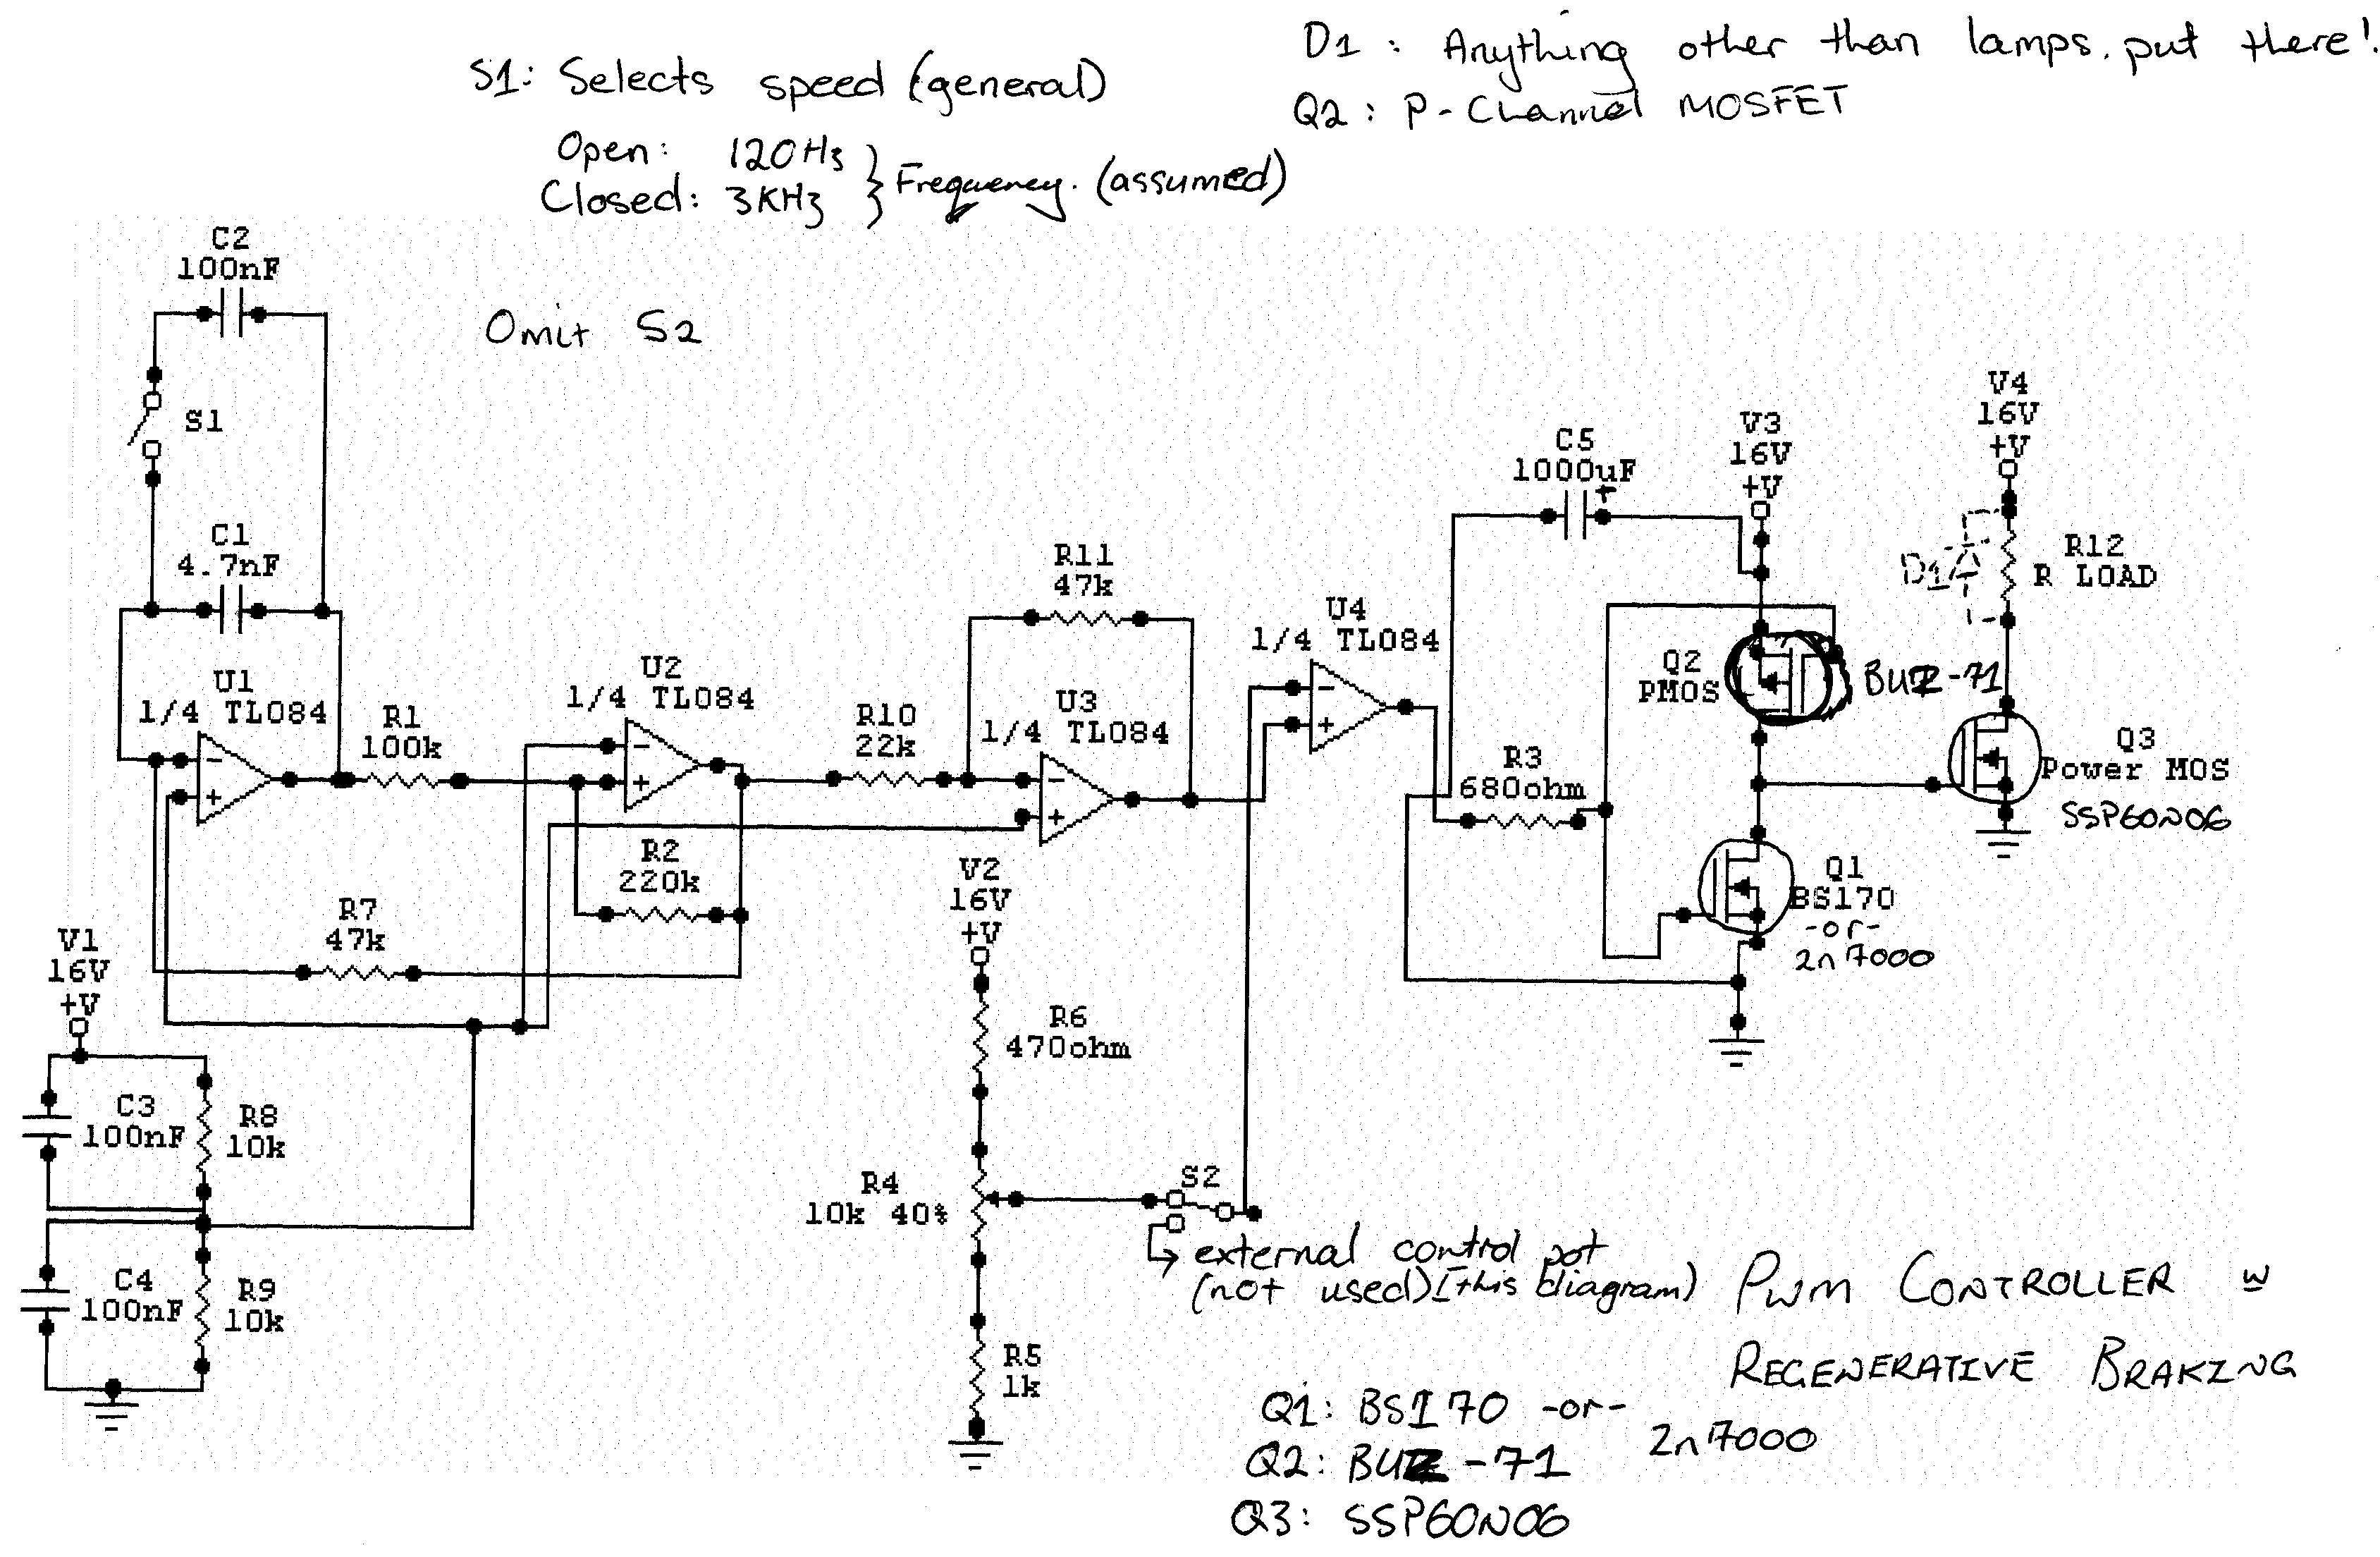 S1: Selects speed (general)
Open: 120Hz
Closed: 3KHz } Frequency. (assumed)
D1 : Anything other than lamps. put there!
Q2 : P-Channel MOSFET
Omit S2
C2
100nF
S1
C1
4.7nF
U1
1/4 TL084
R1
100k
U2
1/4 TL084
R2
220k
R7
47k
R10
22k
R11
47k
U3
1/4 TL084
U4
1/4 TL084
C5
1000uF
+
V3
16V
+V
V4
16V
+V
D1
R12
R LOAD
Q2
PMOS
BUZ-71
Q3
Power MOS
SSP60N06
R3
680ohm
Q1
BS170
-or-
2n7000
V1
16V
+V
C3
100nF
R8
10k
C4
100nF
R9
10k
V2
16V
+V
R6
470ohm
R4
10k 40%
R5
1k
S2
external control pot
(not used)(this diagram)
PWM CONTROLLER w
REGENERATIVE BRAKING
Q1: BS170 -or- 2n7000
Q2: BUZ-71
Q3: SSP60N06